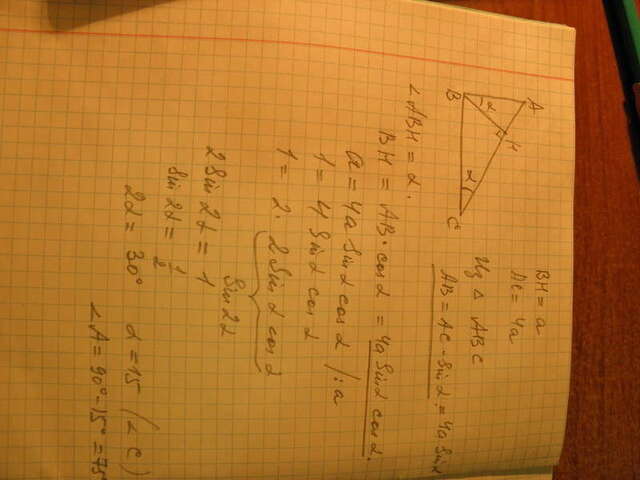 A
H
B
C
α
α
BH = a
AC = 4a
Из Δ ABC
AB = AC · sin α = 4a sin α
∠ABH = α.
BH = AB · cos α = 4a sin α cos α.
a = 4a sin α cos α /: a
1 = 4 sin α cos α
1 = 2 · 2 sin α cos α
sin 2α
2 sin 2α = 1
sin 2α = 1/2
2α = 30° α = 15 (∠C)
∠A = 90° - 15° = 75